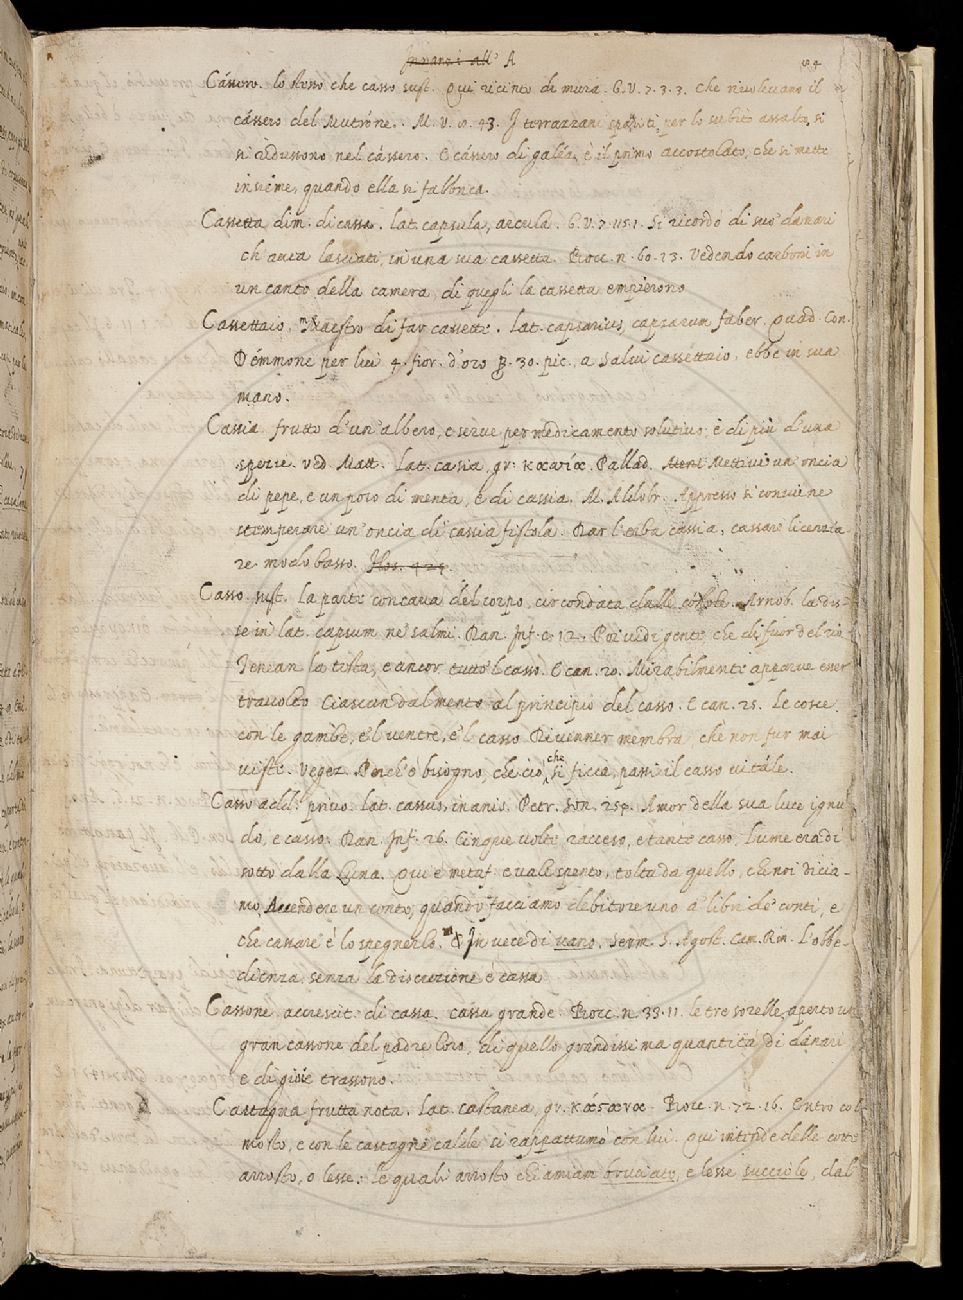 Innanzi all' A 94
Cássero. lo stesso che casso sust. Qui ricinto di mura. G.V. 7. 3. 3. Che rivolevano il
cássero del Mutróne. M. V. 10. 43. I terrazzani per lo subito assalto si
si ridussono nel cássero. E cássero di galéa, è il primo accostolato, che si mette
insieme, quando ella si fabbrica.
Cassetta dim. di cassa. lat. capsula, arcula. G. V. 7. 115. 1. Si ricordò di suo danari
ch' avea lasciati, in una sua cassetta. Bocc. n. 60. 23. Vedendo carboni in
un canto della camera, di quegli la cassetta empierono
Cassettaio, Maestro di far cassette. Lat. capsarius, capsarum faber. Quad. Con.
Démmone per lui 4. fior. d'oro 30. pic., a Salvi cassettaio, ebbe in sua
mano.
Cassia. frutto d'un' albero, e serve per medicamento solutivo: è di più d'una
spezie. ved. Matt. Lat. casia, gr. κασία. Pallad. Mettivi un' oncia
di pepe, e un poco di menta, e di cassia. M. Aldobr. Appresso si conviene
stemperare un' oncia di cassia fistola. Dar l'erba cassia, cassare licenzia-
re modo basso.
Casso. sust. la parte concava del corpo, circondata dalle costole. Arnob. la dis-
se in lat. capsum ne' salmi. Dan. Inf. c. 12. Poi vidi gente, che di fuor del rio
Tenean la testa, e ancor tutto 'l casso. E can. 20. Mirabilmente apparve esser
travolto Ciascun dal mento al principio del casso. E can. 25. Le cosce
con le gambe, e 'l ventre, e 'l casso Divenner membra, che non fur mai
viste. Veget. Perch' è bisogno, che ciò che si ficca, passi il casso vitále.
Casso add. privo. lat. cassus, inanis. Petr. Son. 254. Amor della sua luce ignu
do, e casso. Dan. Inf. 26. Cinque volte racceso, e tante casso, Lume era di
sotto dalla Luna. Qui è metaf. e vale spento, tolta da quello, che noi dicia-
mo, Accendere un conto, quando facciamo debitore uno a' libri de' conti, e
che cassare è lo spegnerlo. In vece di vano. Serm. S. Agost. Cam. Rin. L'obbe-
dienza senza la discrezione è cassa
Cassone accrescit. di cassa. cassa grande. Bocc. n. 33. 11. le tre sorelle, aperto un
gran cassone del padre loro, di quello grandissima quantità di danari
e di gioie trassono.
Castagna frutta nota. Lat. castanea, gr. κάστανα. Bocc. n. 72. 16. Entro col
mosto, e con le castagne calde si rappattumò con lui. Qui intende delle cotte
arrosto, o lesse: le quali arrosto chiamiam bruciate, e lesse succiole, dal